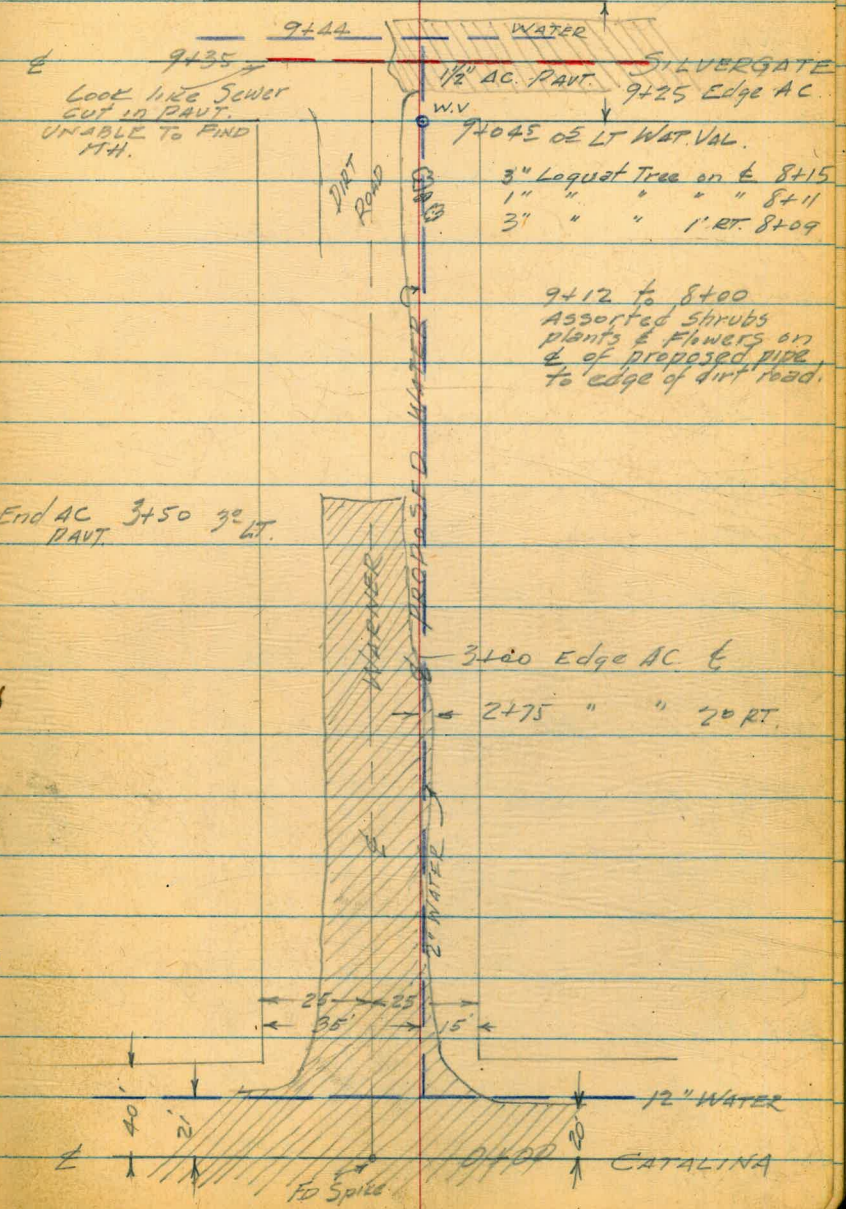 9+44
WATER
℄
9+35
SILVERGATE
1½" AC. PAVT.
9+25 Edge AC
Look like Sewer
CUT in PAVT.
UNABLE TO FIND
MH.
W.V
9+04⁵ 0⁵ LT WAT. VAL.
DIRT
ROAD
3" Loquat Tree on ℄ 8+15
1" " " " " 8+11
3" " " 1' RT. 8+09
9+12 to 8+00
Assorted Shrubs
plants & Flowers on
℄ of proposed pipe
to edge of dirt road.
PROPOSED WATER
End AC 3+50 3⁰ LT.
PAVT.
WARNER
3+00 Edge AC ℄
2+75 " " 2⁰ RT.
℄
2" WATER
25 25'
35' 15'
40'
21'
12" WATER
20'
℄
0+00
CATALINA
FD Spike